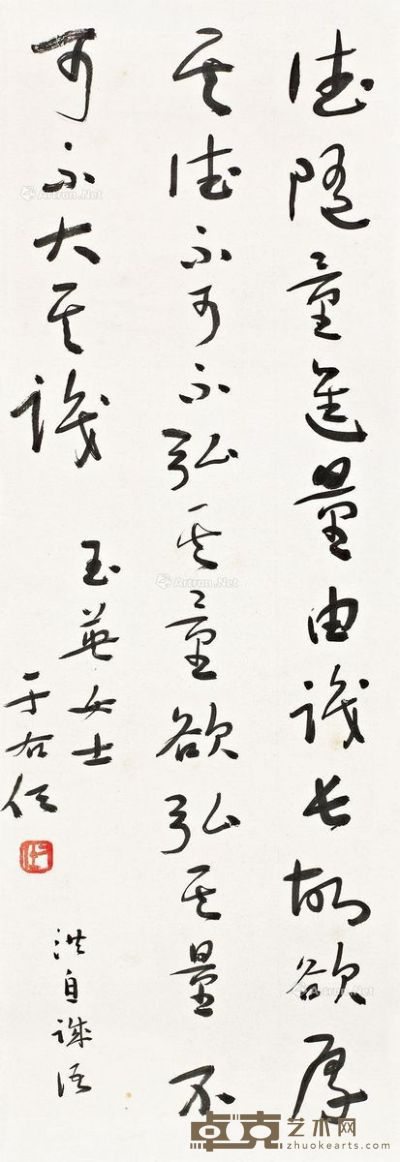 德随量進量由識長故欲厚
其德不可不弘其量欲弘其量不
可不大其識
玉英女士
于右任
洪自誠語
Artron.Net
卓克艺术网
zhuokearts.com